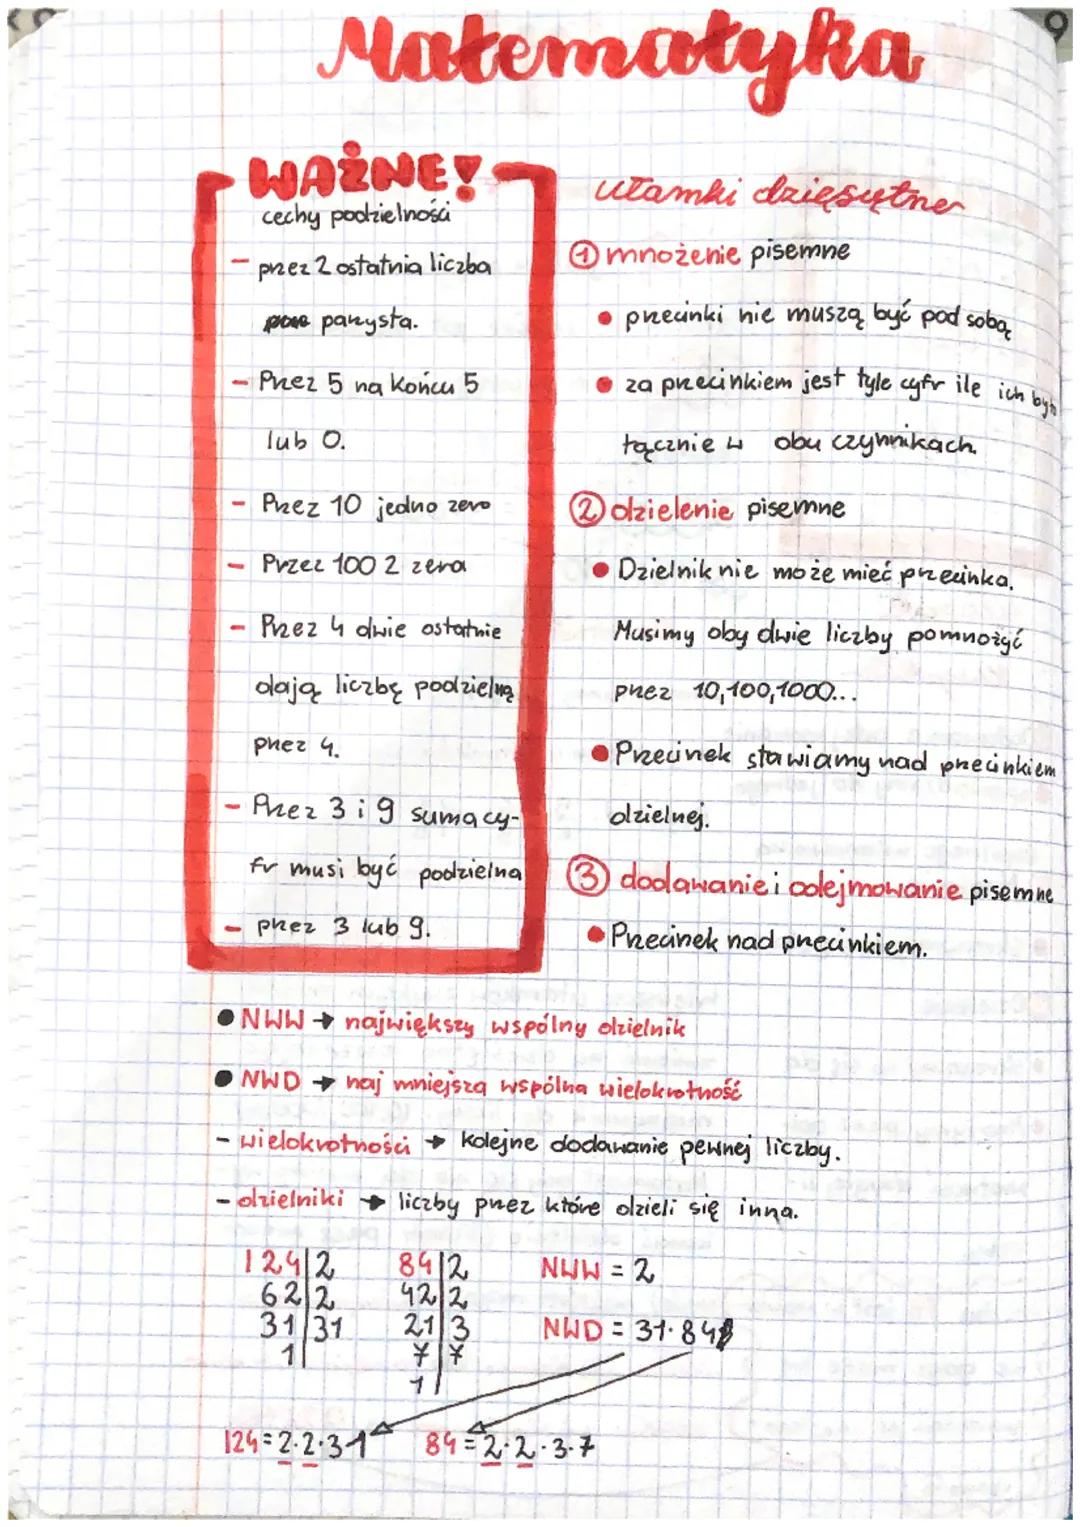 Matematyka
WAŻNE!
cechy podzielności
- przez 2 ostatnia liczba
parzysta.
- Przez 5 na końcu 5
lub 0.
- Przez 10 jedno zero
- Przez 100 2 zera
- Przez 4 dwie ostatnie
dają liczbę podzielną
przez 4.
- Przez 3 i 9 suma cy-
fr musi być podzielna
- przez 3 lub 9.
ułamki dzięsętne
① mnożenie pisemne
• przecinki nie muszą być pod sobą
• za przecinkiem jest tyle cyfr ile ich było
łącznie w obu czynnikach.
② dzielenie pisemne
• Dzielnik nie może mieć przecinka.
Musimy oby dwie liczby pomnożyć
przez 10,100,1000...
• Przecinek stawiamy nad przecinkiem
dzielnej.
③ dodawanie i odejmowanie pisemne
• Przecinek nad przecinkiem.
• NWW → największy wspólny dzielnik
• NWD → naj mniejszą wspólna wielokrotność
- wielokrotności → kolejne dodawanie pewnej liczby.
- dzielniki → liczby przez które dzieli się inna.
124|2 84|2 NWW = 2
62|2 42|2
31|31 21|3 NWD = 31·84
1| 7|7
1|
124=2·2·31 84=2·2·3·7